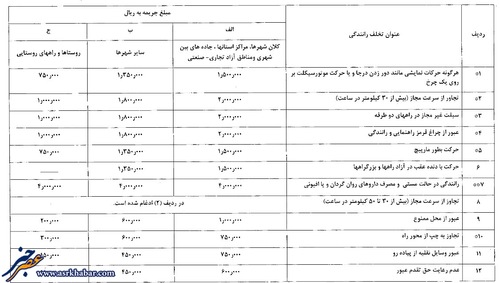 مبلغ جریمه به ریال
ردیف عنوان تخلف رانندگی الف ب ج
کلان شهرها، مراکز استانها، جاده های بین شهری ومناطق آزاد تجاری- صنعتی سایر شهرها روستاها و راههای روستایی
۵۱ هرگونه حرکات نمایشی مانند دور زدن درجا و یا حرکت موتورسیکلت بر روی یک چرخ ۱٫۵۰۰٫۰۰۰ ۱٫۲۵۰٫۰۰۰ ۷۵۰٫۰۰۰
۵۲ تجاوز از سرعت مجاز (بیش از ۳۰ کیلومتر در ساعت) ۲٫۰۰۰٫۰۰۰ ۱٫۸۰۰٫۰۰۰ ۱٫۰۰۰٫۰۰۰
۵۳ سبقت غیر مجاز در راههای دو طرفه ۲٫۰۰۰٫۰۰۰ ۱٫۸۰۰٫۰۰۰ ۱٫۰۰۰٫۰۰۰
۵۴ عبور از چراغ قرمز راهنمایی و رانندگی ۲٫۰۰۰٫۰۰۰ ۱٫۸۰۰٫۰۰۰ ۱٫۰۰۰٫۰۰۰
۵۵ حرکت بطور مارپیچ ۱٫۵۰۰٫۰۰۰ ۱٫۲۵۰٫۰۰۰ ۷۵۰٫۰۰۰
۶ حرکت با دنده عقب در آزاد راهها و بزرگراهها ۱٫۵۰۰٫۰۰۰ ۱٫۲۵۰٫۰۰۰
رانندگی در حالت مستی و مصرف داروهای روان گردان و یا افیونی ۴٫۰۰۰٫۰۰۰ ۴٫۰۰۰٫۰۰۰ ۴٫۰۰۰٫۰۰۰
۸ تجاوز از سرعت مجاز (بیش از ۳۰ تا ۵۰ کیلومتر در ساعت) در ردیف (۲) ادغام شده است.
۹ عبور از محل ممنوع ۱٫۰۰۰٫۰۰۰ ۶۰۰٫۰۰۰ ۲۰۰٫۰۰۰
تجاوز به چپ از محور راه ۷۵۰٫۰۰۰ ۶۰۰٫۰۰۰
۱۱ عبور وسایل نقلیه از پیاده رو ۷۵۰٫۰۰۰ ۴۵۰٫۰۰۰
۱۲ عدم رعایت حق تقدم عبور ۶۰۰٫۰۰۰ ۴۵۰٫۰۰۰
عصر خبر
www.asrkhabar.com